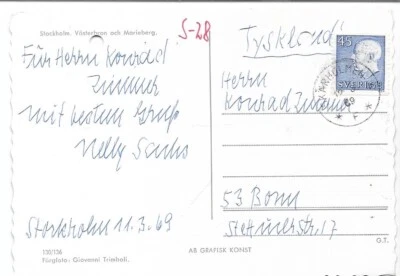 Stockholm. Västerbron och Marieberg.
S-28
Für Herrn Konrad
Zimmer
mit bestem Gruß
Nelly Sachs
Stockholm 11.3.69
130/136
Färgfoto: Giovanni Trimboli.
AB GRAFISK KONST
Tyskland
45
SVERIGE
Herrn
Konrad Zimmer
53 Bonn
Stettinerstr. 17
G.T.